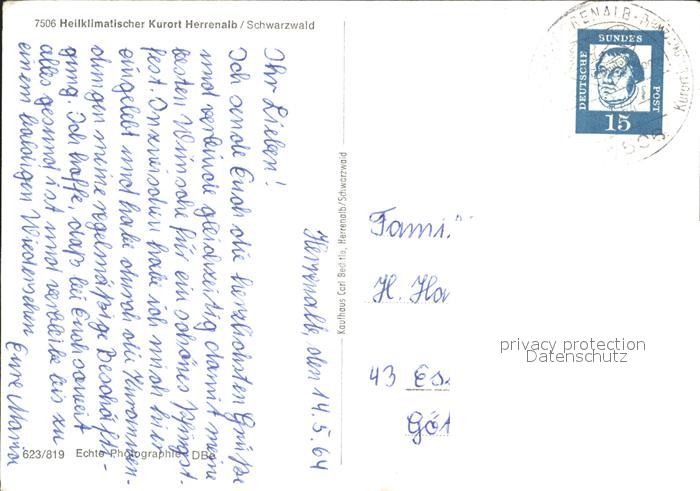 7506 Heilklimatischer Kurort Herrenalb / Schwarzwald
Herrenalb, den 14.5.64
Ihr Lieben!
Ich sende Euch die herzlichsten Grüße
und verbinde gleichzeitig damit meine
besten Wünsche für ein schönes Pfingst-
fest. Inzwischen habe ich mich hier
eingelebt und habe durch die Kuranwen-
dungen meine regelmäßige Beschäfti-
gung. Ich hoffe, daß bei Euch soweit
alles gesund ist und verbleibe bis zu
einem baldigen Wiedersehen Eure Mama
623/819 Echte Photographie
Kaufhaus Carl Herrenalb/Schwarzwald
DEUTSCHE BUNDES POST
15
Fami
H. Ha
43 Es
Göt
privacy protection
Datenschutz